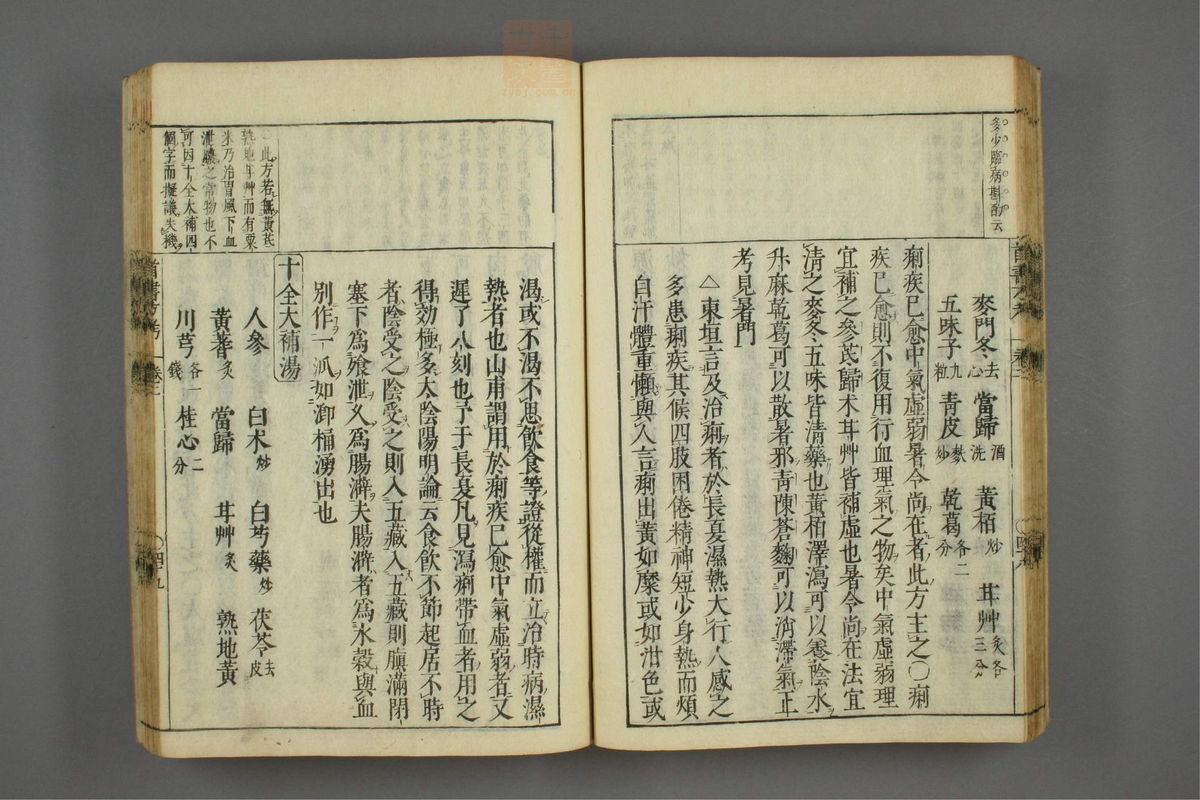 多少臨病斟酌云
麥門冬去心 當歸酒洗 黃栢炒 甘艸炙各三分
五味子九粒 青皮麩炒 乾葛各二分
痢疾已愈中氣虛弱暑令尚在者此方主之○痢
疾已愈則不復用行血理氣之物矣中氣虛弱理
宜補之參芪歸术甘艸皆補虛也暑令尚在法宜
清之麥冬五味皆清藥也黃栢澤瀉可以養陰水
升麻乾葛可以散暑邪青陳蒼麴可以消滯氣正
考見暑門
△東垣言及治痢者於長夏濕熱大行人感之
多患痢疾其候四肢困倦精神短少身熱而煩
自汗體重懶與人言痢出黃如糜或如泔色或
渴或不渴不思飲食等證從權而立治時病濕
熱者也山甫謂用於痢疾已愈中氣虛弱者又
遲了八刻也予于長夏凡見瀉痢帶血者用之
得効極多太陰陽明論云食飲不節起居不時
者陰受之陰受之則入五藏入五藏則䐜滿閉
塞下為飧泄久為腸澼夫腸澼者為水穀與血
別作一派如㵼桶湧出也
此方若無黃芪
熟地甘艸而有粟
米乃治胃風下血
泄膿之常物也不
可因十全大補四
箇字而擬議失機
十全大補湯
人參 白术炒 白芍藥炒 茯苓去皮
黃蓍炙 當歸 甘艸炙 熟地黃
川芎各一錢 桂心二分